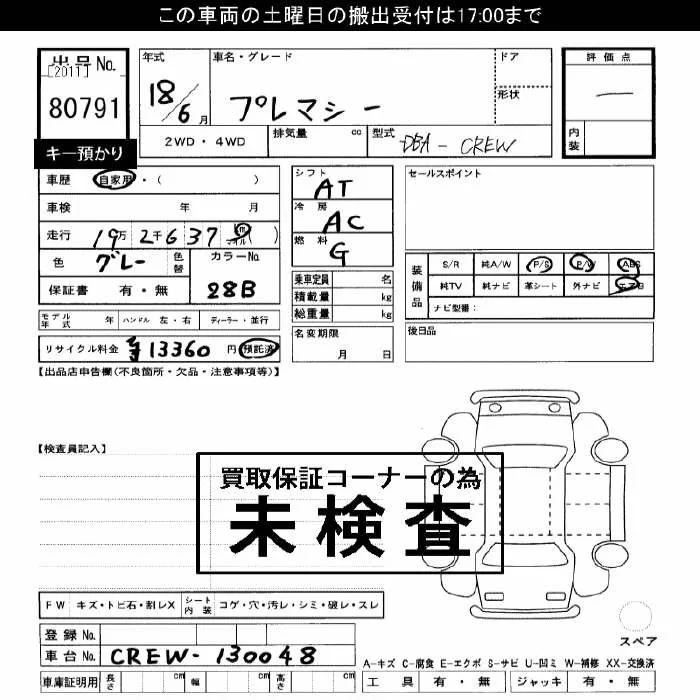 この車両の土曜日の搬出受付は17:00まで
出品No.
[2011]
80791
キー預かり
年式
18/6月
車名・グレード
プレマシー
ドア
形状
2WD・4WD
排気量 cc
型式 DBA-CREW
評価点
—
内装
車歴 自家用・( )
車検 年 月
走行 19万2千637 km マイル )
色 グレー 色替
カラーNo. 28B
保証書 有・無
モデル年式 年 ハンドル 左・右 ディーラー・並行
リサイクル料金 ¥13360円 預託済
シフト AT
冷房 AC
燃料 G
乗車定員 名
積載量 kg
総重量 kg
名変期限
月 日
セールスポイント
装備品
S/R 純A/W P/S P/W ABS
純TV 純ナビ 革シート 外ナビ エアB
ナビ型番:
後日品
【出品店申告欄(不良箇所・欠品・注意事項等)】
【検査員記入】
買取保証コーナーの為
未検査
FW キズ・トビ石・割レX シート内装 コゲ・穴・汚レ・シミ・破レ・スレ
登録No.
車台No. CREW-130048
車庫証明用 長さ cm 幅 cm 高さ cm
スペア
A-キズ C-腐食 E-エクボ S-サビ U-凹ミ W-補修 XX-交換済
工具 有・無 ジャッキ 有・無